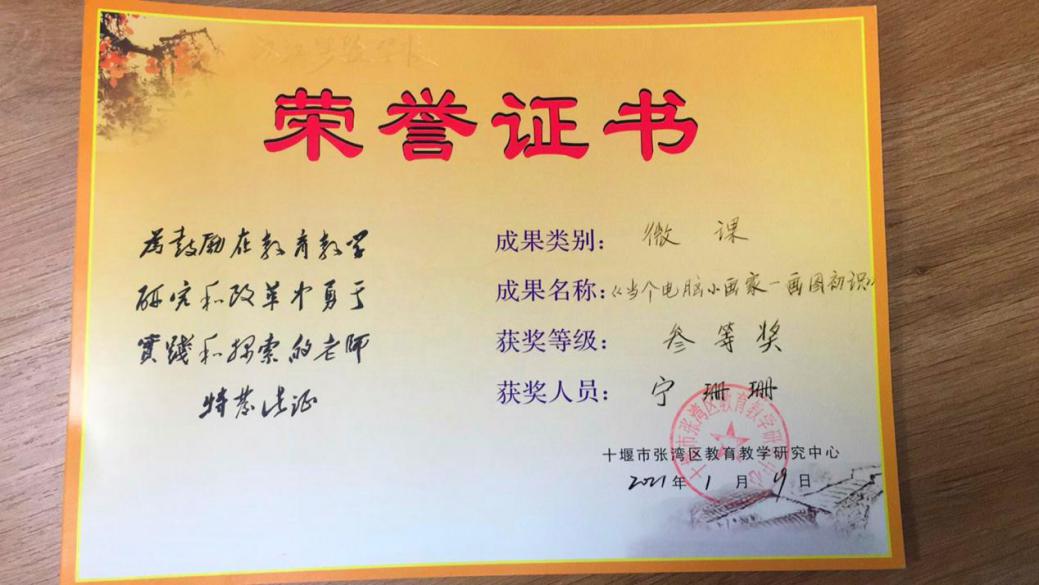 荣誉证书
为鼓励在教育教学
研究和改革中勇于
實踐和探索的老师
特发此证
成果类别：微课
成果名称：《当个电脑小画家－画图初识》
获奖等级：叁等奖
获奖人员：宁珊珊
十堰市张湾区教育教学研究中心
2021年1月19日
十堰市张湾区教育教学研究中心